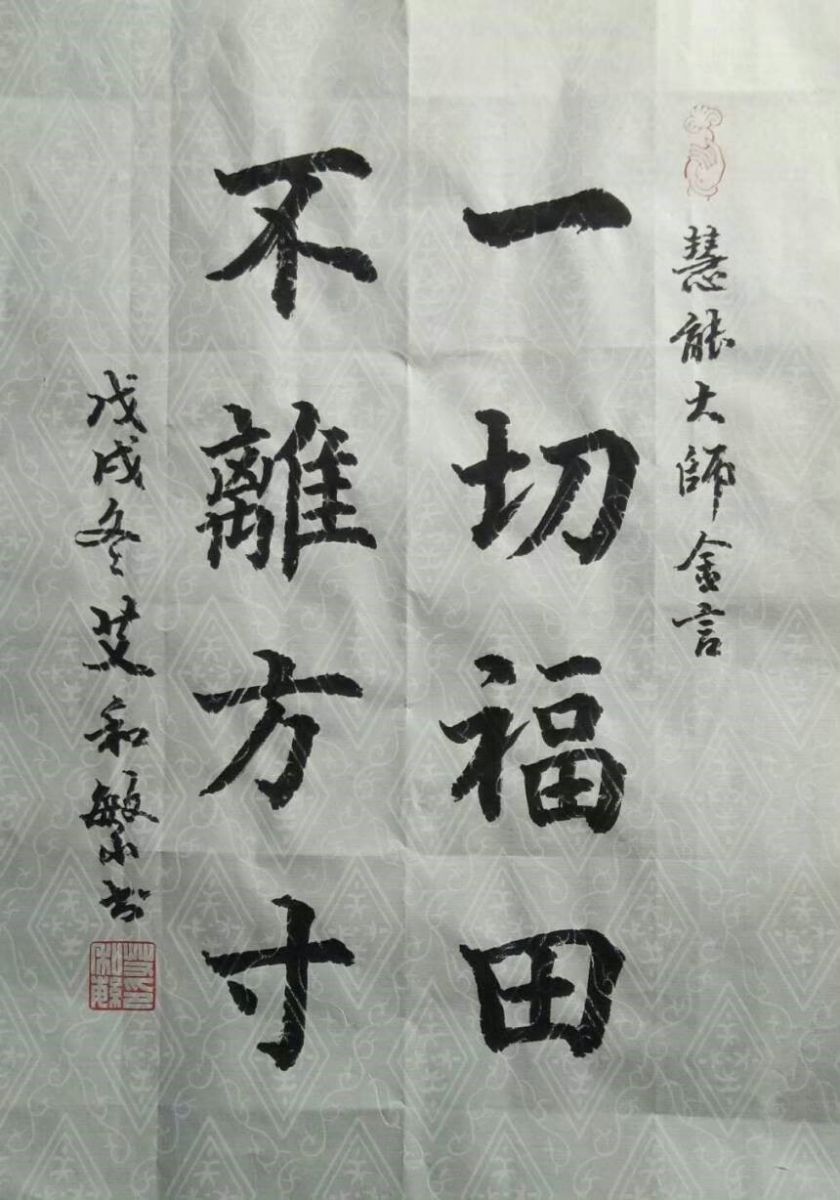 慧能大師金言
一切福田
不離方寸
戊戌冬艾和敏书